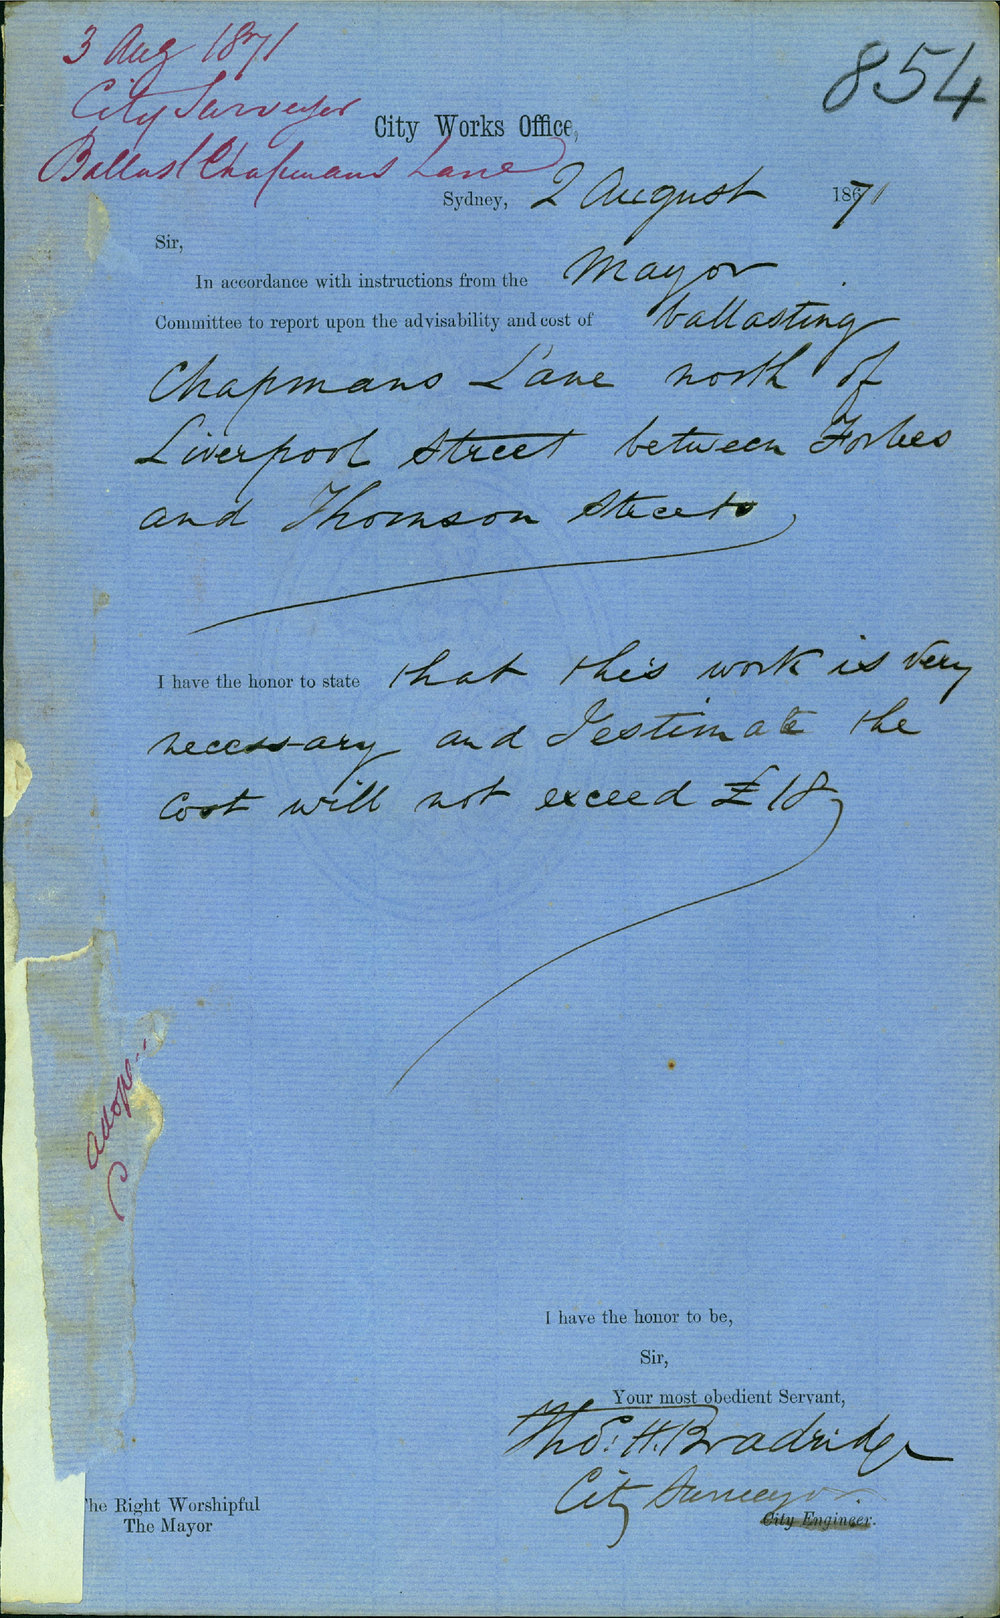 3 Aug 1871
City Surveyor
Ballast Chapmans Lane
854
City Works Office,
Sydney, 2 August 1871
Sir,
In accordance with instructions from the Mayor
Committee to report upon the advisability and cost of ballasting
Chapmans Lane north of
Liverpool Street between Forbes
and Thomson Streets
I have the honor to state that this work is very
necessary and I estimate the
Cost will not exceed £18
adop
I have the honor to be,
Sir,
Your most obedient Servant,
Thos: H. Bradridge
City Surveyor
City Engineer.
The Right Worshipful
The Mayor